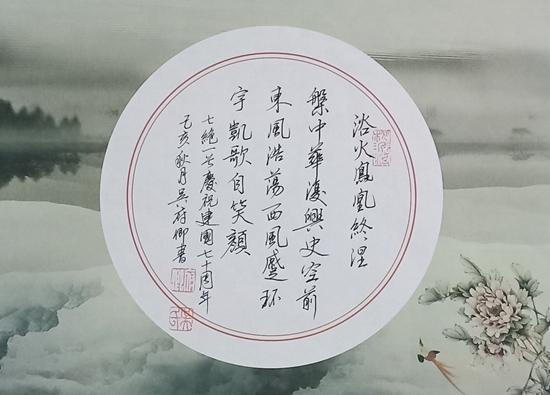 浴火鳳凰終涅
槃中華復興史空前
東風浩蕩西風蹙環
宇凱歌自笑顏
七絕一首慶祝建國七十周年
己亥秋月吴府卿書